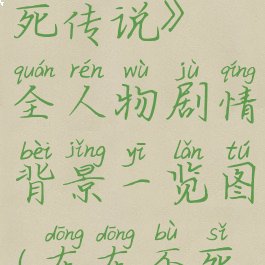 死传说》
quán rén wù jù qíng
全人物剧情
bèi jǐng yī lǎn tú
背景一览图
dōng dōng bù sǐ